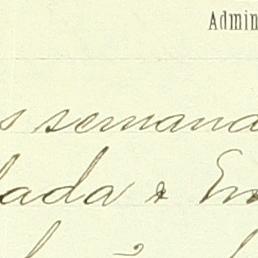 Admin
s semana
lada & Em